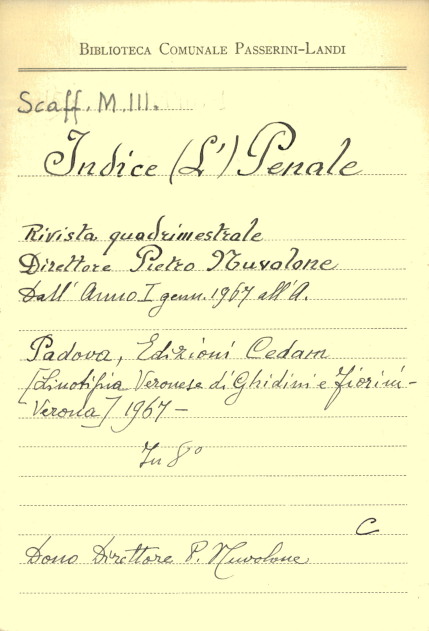 BIBLIOTECA COMUNALE PASSERINI-LANDI
Scaff. M.III.
Indice (L') Penale
Rivista quadrimestrale
Direttore Pietro Nuvolone
Dall' Anno I genn. 1967 all'A.
Padova, Edizioni Cedam
[Linotipia Veronese di Ghidini e Fiorini-
Verona] 1967 -
In 8°
C
Dono Direttore P. Nuvolone